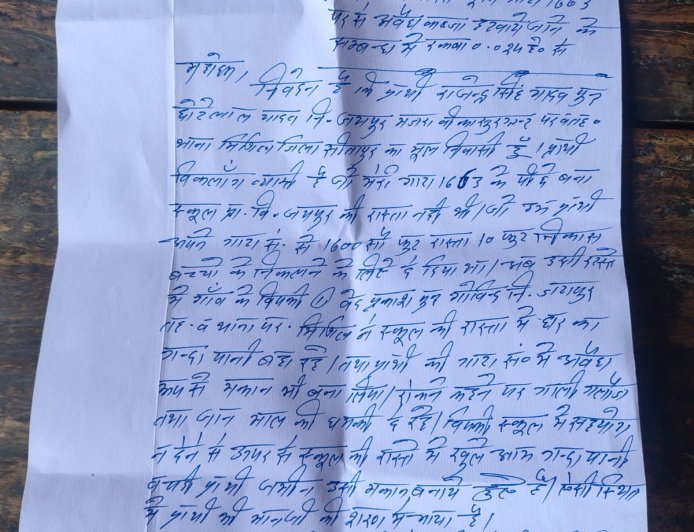 पर से अवैध कब्जा हटवाये जाने के
सम्बन्ध में रकबा 0.024 हे० से
महोदय,
निवेदन है कि प्रार्थी राजेन्द्र सिंह यादव पुत्र
छोटेलाल यादव नि. जयपुर मजरा
थाना मिश्रिख जिला सीतापुर का मूल निवासी हूँ। प्रार्थी
विकलाँग व्यक्ति है जो मेरी गाटा 1603 के पीछे बना
स्कूल प्रा. वि. जयपुर को रास्ता नही थी। जो हम प्रार्थी
अपने गाटा सं. से 1600 सौ फुट रास्ता 10 फुट निकास
बच्चो के निकलने के लिए दे दिया था। अब उसी रास्ते
में गाँव के विपक्षी ① वेद प्रकाश पुत्र गोविन्द नि. जयपुर
तह. व थाना पर. मिश्रिख ने स्कूल की रास्ता में घर का
गन्दा पानी बहा रहे। तथा प्रार्थी की गाटा सं० में अवैध
रूप से मकान भी बना लिया। रोकने कहने पर गाली गलौज
तथा जान माल की धमकी दे रहे। विपक्षी स्कूल में सहयोग
न देने से ऊपर से स्कूल की रास्ते में खुले आम गन्दा पानी
प्रार्थी जमीन उसी मकान बनाये है। ऐसी स्थित
में प्रार्थी की शरण में आया है।